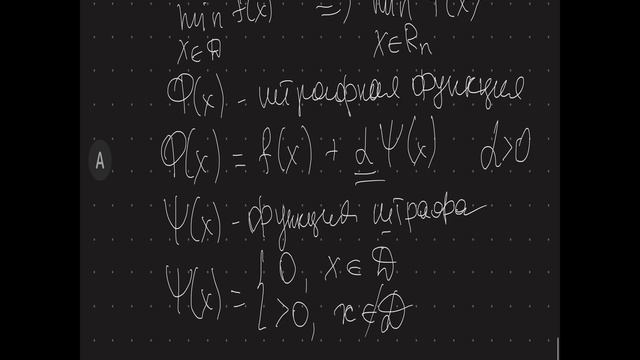 min f(x) => min
x∈D x∈Rn
Φ(x) - штрафная функция
Φ(x) = f(x) + αΨ(x) α>0
Ψ(x) - функция штрафа
Ψ(x) = { 0, x∈D
>0, x∉D
A